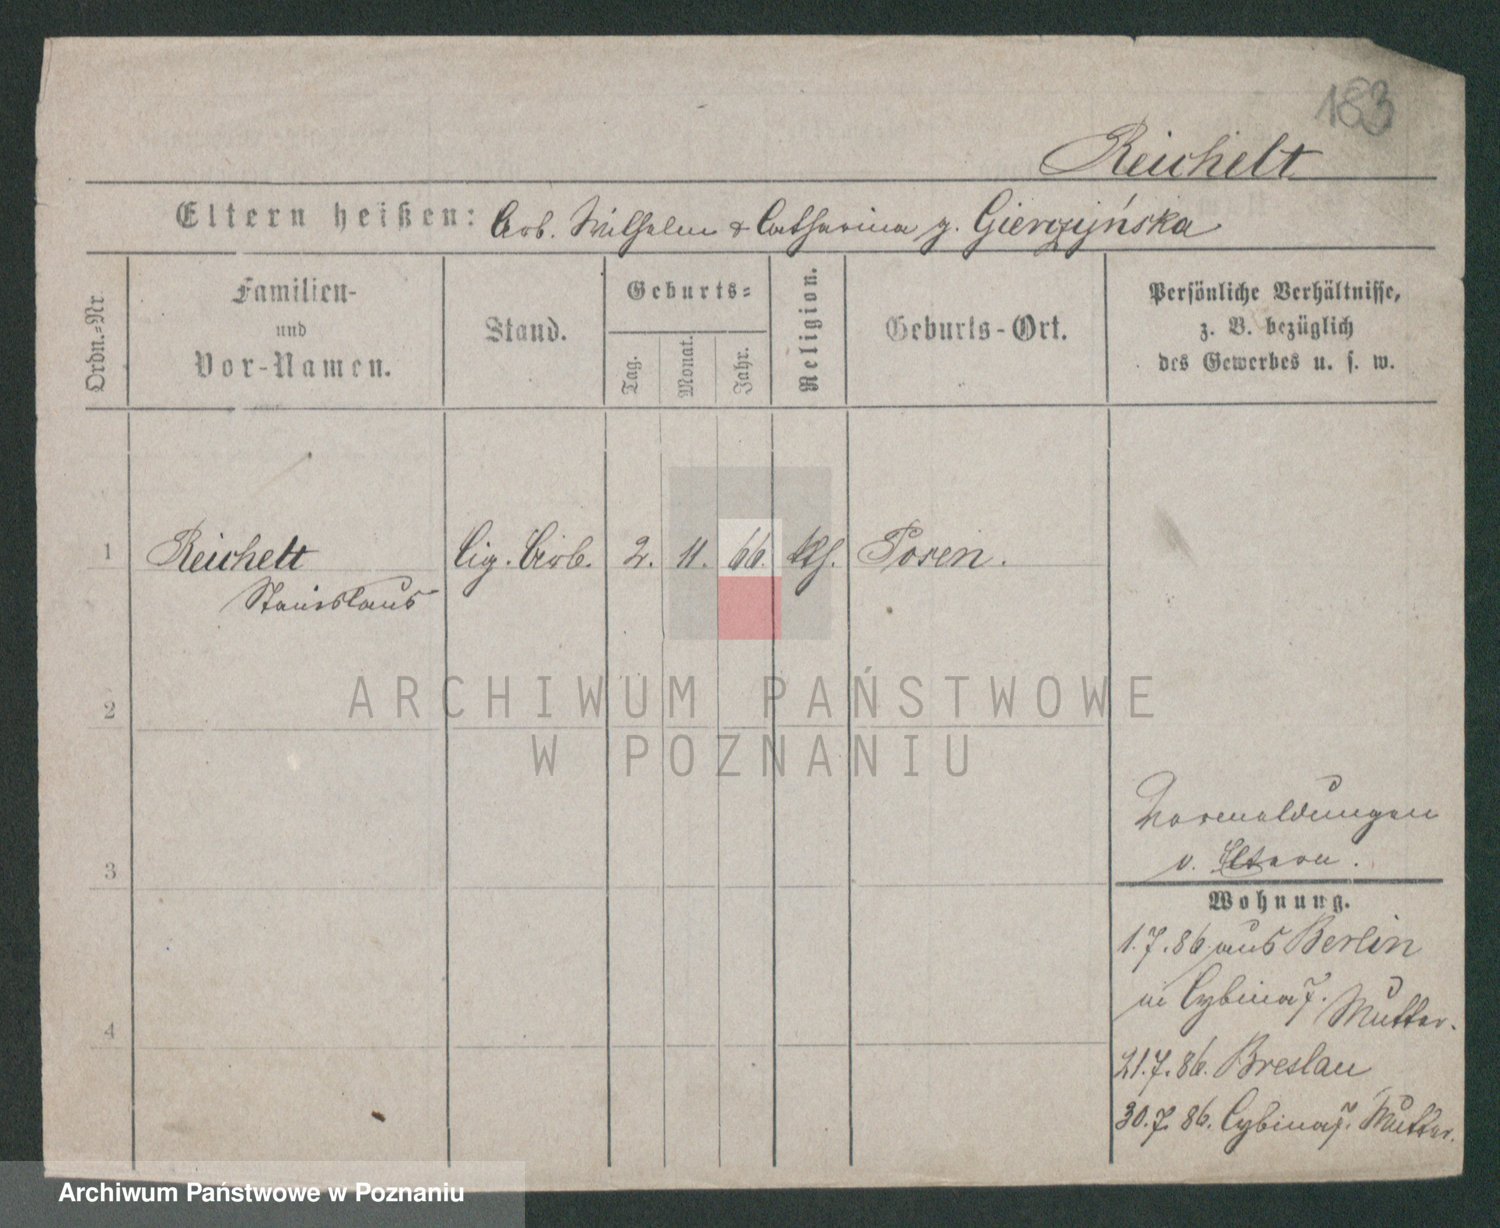 183
Reichelt
Eltern heißen: Arb. Wilhelm & Catharina g. Gierczyńska
Ordn.=Nr.
Familien-
und
Vor-Namen.
Stand.
Geburts=
Tag.
Monat.
Jahr.
Religion.
Geburts-Ort.
Persönliche Verhältnisse,
z. B. bezüglich
des Gewerbes u. s. w.
1
Reichelt
Stanislaus
Cig. Arb.
2.
11.
66.
kth.
Posen.
2
3
4
ARCHIWUM PAŃSTWOWE
W POZNANIU
Vormeldungen
v. Eltern.
Wohnung.
1.7.86 aus Berlin
in Cybina 7. Mutter.
21.7.86. Breslau
30.7.86. Cybina 7. Mutter.
Archiwum Państwowe w Poznaniu